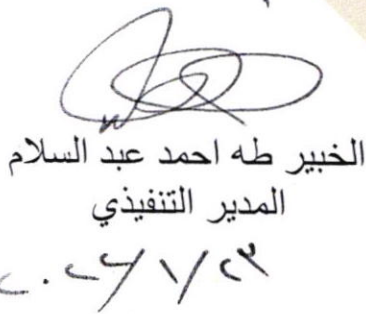 الخبير طه احمد عبد السلام
المدير التنفيذي
٢٠٢٦/١/٢٣